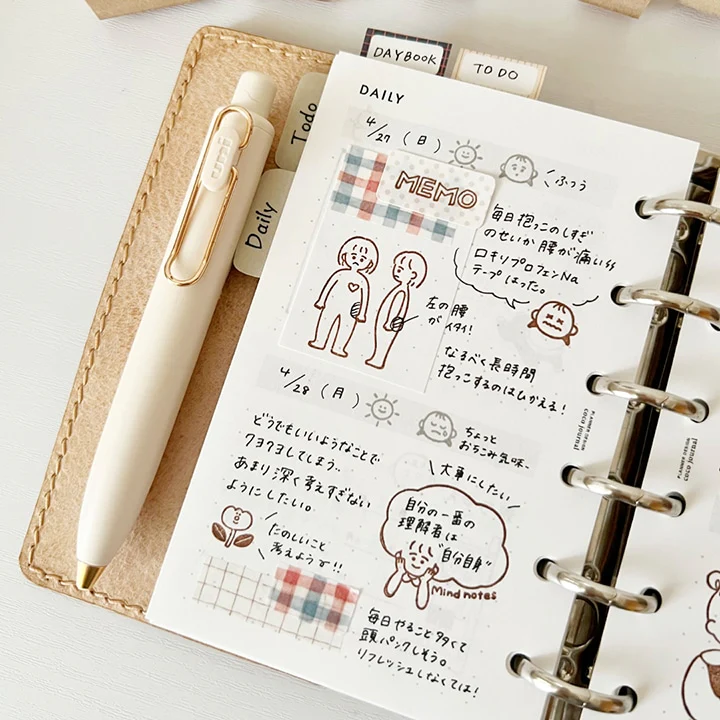 DAYBOOK
TO DO
Todo
Daily
uni
DAILY
4/27 (日)
ふつう
MEMO
毎日抱っこのしすぎ
のせいか腰が痛い
ロキソプロフェンNa
テープはった。
左の腰
がイタイ!
なるべく長時間
抱っこするのはひかえる!
4/28 (月)
ちょっと
おちこみ気味~
どうでもいいようなことで
クヨクヨしてしまう..
あまり深く考えすぎない
ようにしたい。
たのしいこと
考えよう!!
大事にしたい
自分の一番の
理解者は
"自分自身"
Mind notes
毎日やること多くて
頭パンクしそう。
リフレッシュしなくては!
PLANNER DESIGN
coco journal
coco journal